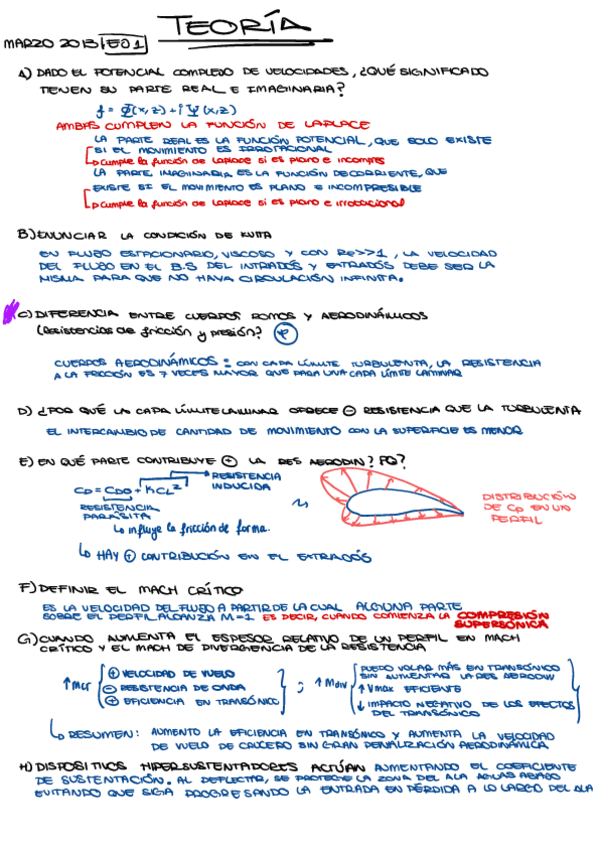 TEORÍA
MARZO 2013 EJ 1
A) DADO EL POTENCIAL COMPLEJO DE VELOCIDADES, ¿QUÉ SIGNIFICADO
TIENEN SU PARTE REAL E IMAGINARIA?
f = Φ(x,z) + i Ψ(x,z)
AMBAS CUMPLEN LA FUNCIÓN DE LAPLACE
LA PARTE REAL ES LA FUNCIÓN POTENCIAL, QUE SOLO EXISTE
SI EL MOVIMIENTO ES IRROTACIONAL
↳ Cumple la función de Laplace si es plano e incompres
LA PARTE IMAGINARIA ES LA FUNCIÓN DE CORRIENTE, QUE
EXISTE SI EL MOVIMIENTO ES PLANO E INCOMPRESIBLE
↳ Cumple la función de Laplace si es plano e irrotacional
B) ENUNCIAR LA CONDICIÓN DE KUTTA
EN FLUJO ESTACIONARIO, VISCOSO Y CON Re>>1, LA VELOCIDAD
DEL FLUJO EN EL B.S DEL INTRADÓS Y EXTRADÓS DEBE SER LA
MISMA PARA QUE NO HAYA CIRCULACIÓN INFINITA.
C) DIFERENCIA ENTRE CUERPOS ROMOS Y AERODINÁMICOS
(Resistencias de fricción y presión?
CUERPOS AERODINÁMICOS: CON CAPA LÍMITE TURBULENTA, LA RESISTENCIA
A LA FRICCIÓN ES 7 VECES MAYOR QUE PARA UNA CAPA LÍMITE LAMINAR
D) ¿POR QUÉ LA CAPA LÍMITE LAMINAR OFRECE ⊖ RESISTENCIA QUE LA TURBULENTA
EL INTERCAMBIO DE CANTIDAD DE MOVIMIENTO CON LA SUPERFICIE ES MENOR
E) EN QUÉ PARTE CONTRIBUYE ⊕ LA RES AERODIN? PQ?
RESISTENCIA
INDUCIDA
CD = CD0 + KCL²
RESISTENCIA
PARÁSITA
↳ influye la fricción de forma.
DISTRIBUCIÓN
DE Cp EN UN
PERFIL
↳ HAY ⊕ CONTRIBUCIÓN EN EL EXTRADÓS
F) DEFINIR EL MACH CRÍTICO
ES LA VELOCIDAD DEL FLUJO A PARTIR DE LA CUAL ALGUNA PARTE
SOBRE EL PERFIL ALCANZA M=1 ES DECIR, CUANDO COMIENZA LA COMPRESIÓN
SUPERSÓNICA
G) CUANDO AUMENTA EL ESPESOR RELATIVO DE UN PERFIL EN MACH
CRÍTICO Y EL MACH DE DIVERGENCIA DE LA RESISTENCIA
↑Mcr
⊕ VELOCIDAD DE VUELO
⊖ RESISTENCIA DE ONDA
⊕ EFICIENCIA EN TRANSÓNICO
; ↑Mdiv
PUEDO VOLAR MÁS EN TRANSÓNICO
SIN AUMENTAR LA RES AERODIN
↑Vmax EFICIENTE
↓ IMPACTO NEGATIVO DE LOS EFECTOS
DEL TRANSÓNICO
↳ RESUMEN: AUMENTO LA EFICIENCIA EN TRANSÓNICO Y AUMENTA LA VELOCIDAD
DE VUELO DE CRUCERO SIN GRAN PENALIZACIÓN AERODINÁMICA
H) DISPOSITIVOS HIPERSUSTENTADORES ACTÚAN AUMENTANDO EL COEFICIENTE
DE SUSTENTACIÓN. AL DEFLECTAR, SE PROTEGE LA ZONA DEL ALA AGUAS ABAJO
EVITANDO QUE SIGA PROGRESANDO LA ENTRADA EN PÉRDIDA A LO LARGO DEL ALA